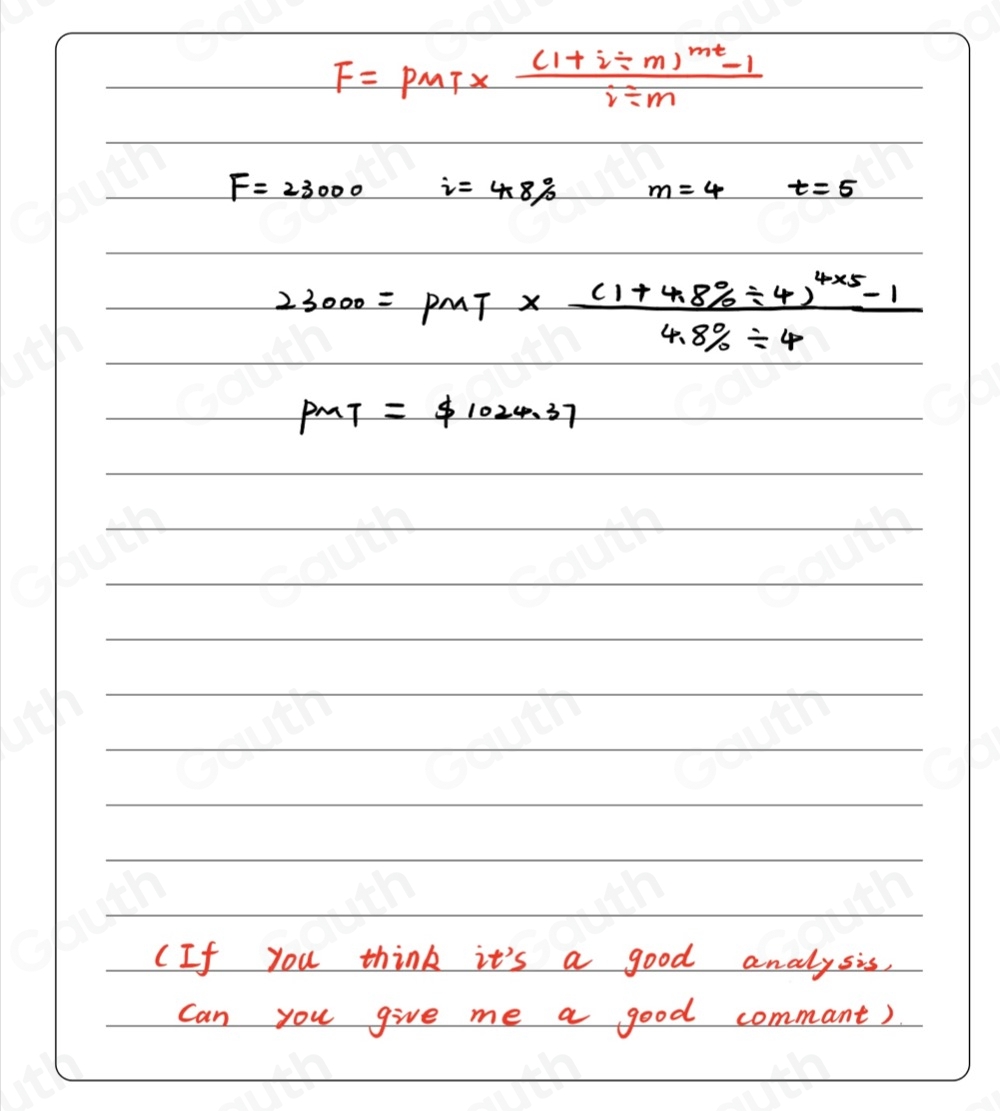 F = PMT × ((1 + i ÷ m)^mt - 1) / (i ÷ m)
F = 23000 i = 4.8% m = 4 t = 5
23000 = PMT × ((1 + 4.8% ÷ 4)^4×5 - 1) / (4.8% ÷ 4)
PMT = $1024.37
(If you think it's a good analysis,
Can you give me a good commant).
Gauth